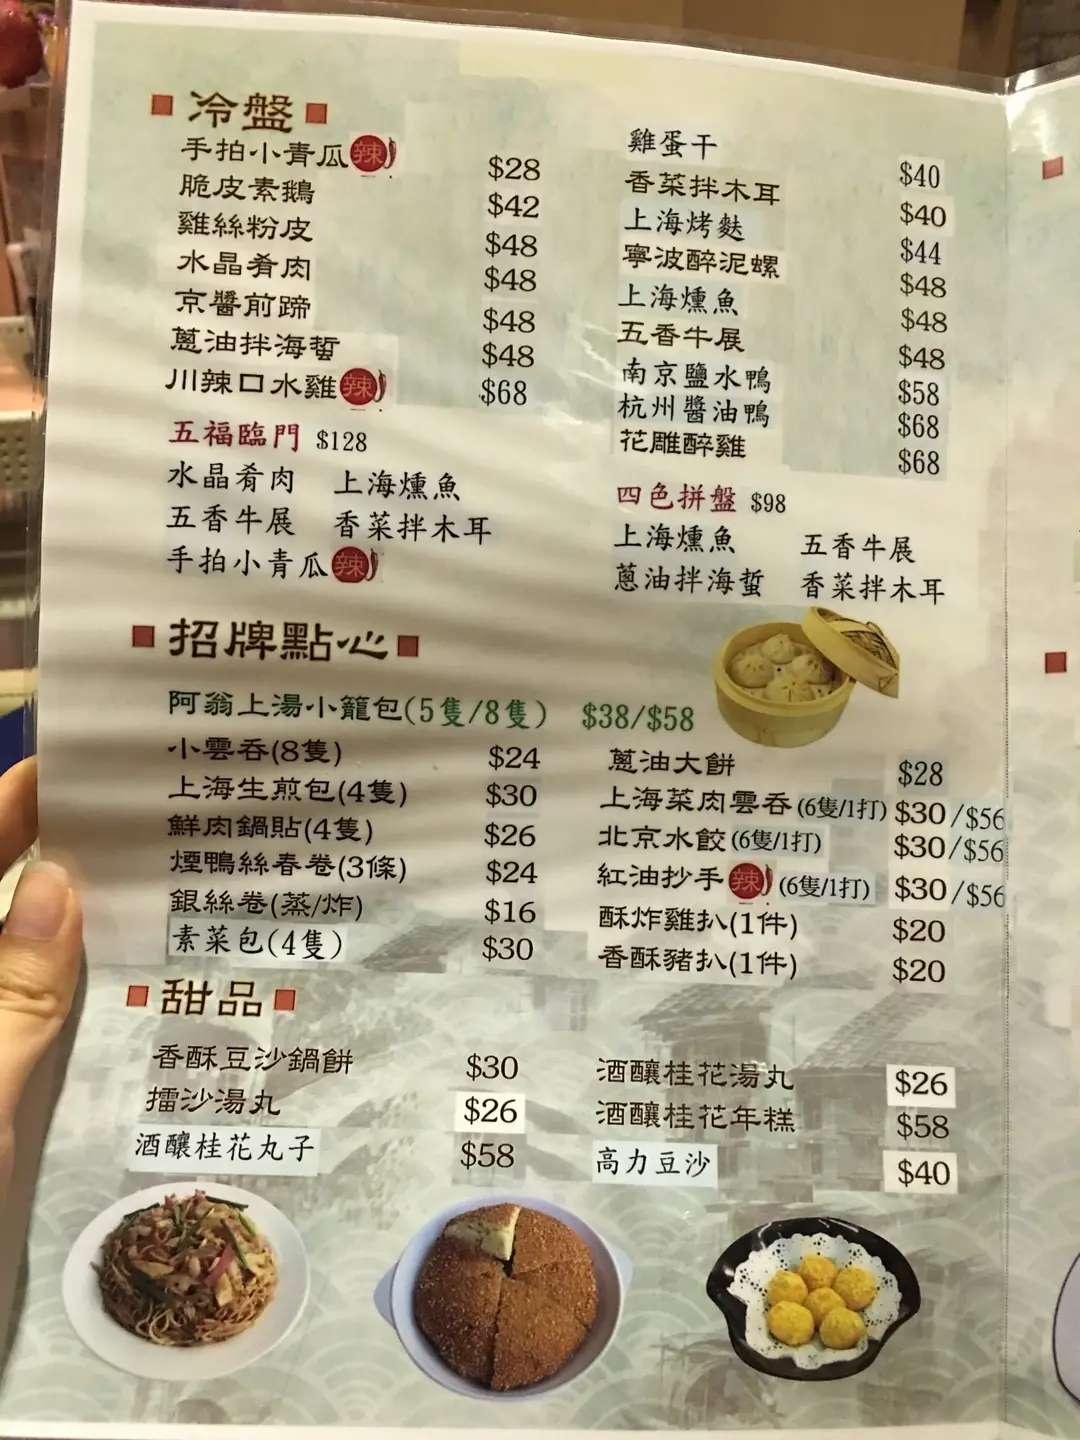 冷盤
手拍小青瓜 辣 $28
脆皮素鵝 $42
雞絲粉皮 $48
水晶肴肉 $48
京醬前蹄 $48
蔥油拌海蜇 $48
川辣口水雞 辣 $68
五福臨門 $128
水晶肴肉 上海燻魚
五香牛展 香菜拌木耳
手拍小青瓜 辣
雞蛋干 $40
香菜拌木耳 $40
上海烤麩 $44
寧波醉泥螺 $48
上海燻魚 $48
五香牛展 $48
南京鹽水鴨 $58
杭州醬油鴨 $68
花雕醉雞 $68
四色拼盤 $98
上海燻魚 五香牛展
蔥油拌海蜇 香菜拌木耳
招牌點心
阿翁上湯小籠包(5隻/8隻) $38/$58
小雲吞(8隻) $24
上海生煎包(4隻) $30
鮮肉鍋貼(4隻) $26
煙鴨絲春卷(3條) $24
銀絲卷(蒸/炸) $16
素菜包(4隻) $30
蔥油大餅 $28
上海菜肉雲吞(6隻/1打) $30/$56
北京水餃(6隻/1打) $30/$56
紅油抄手 辣 (6隻/1打) $30/$56
酥炸雞扒(1件) $20
香酥豬扒(1件) $20
甜品
香酥豆沙鍋餅 $30
擂沙湯丸 $26
酒釀桂花丸子 $58
酒釀桂花湯丸 $26
酒釀桂花年糕 $58
高力豆沙 $40